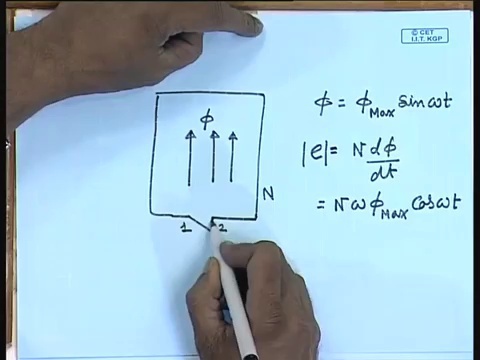 © CET
I.I.T. KGP
ϕ = ϕ_Max sin ωt
ϕ
|e| = N dϕ/dt
N
= N ω ϕ_Max Cos ωt
1 2